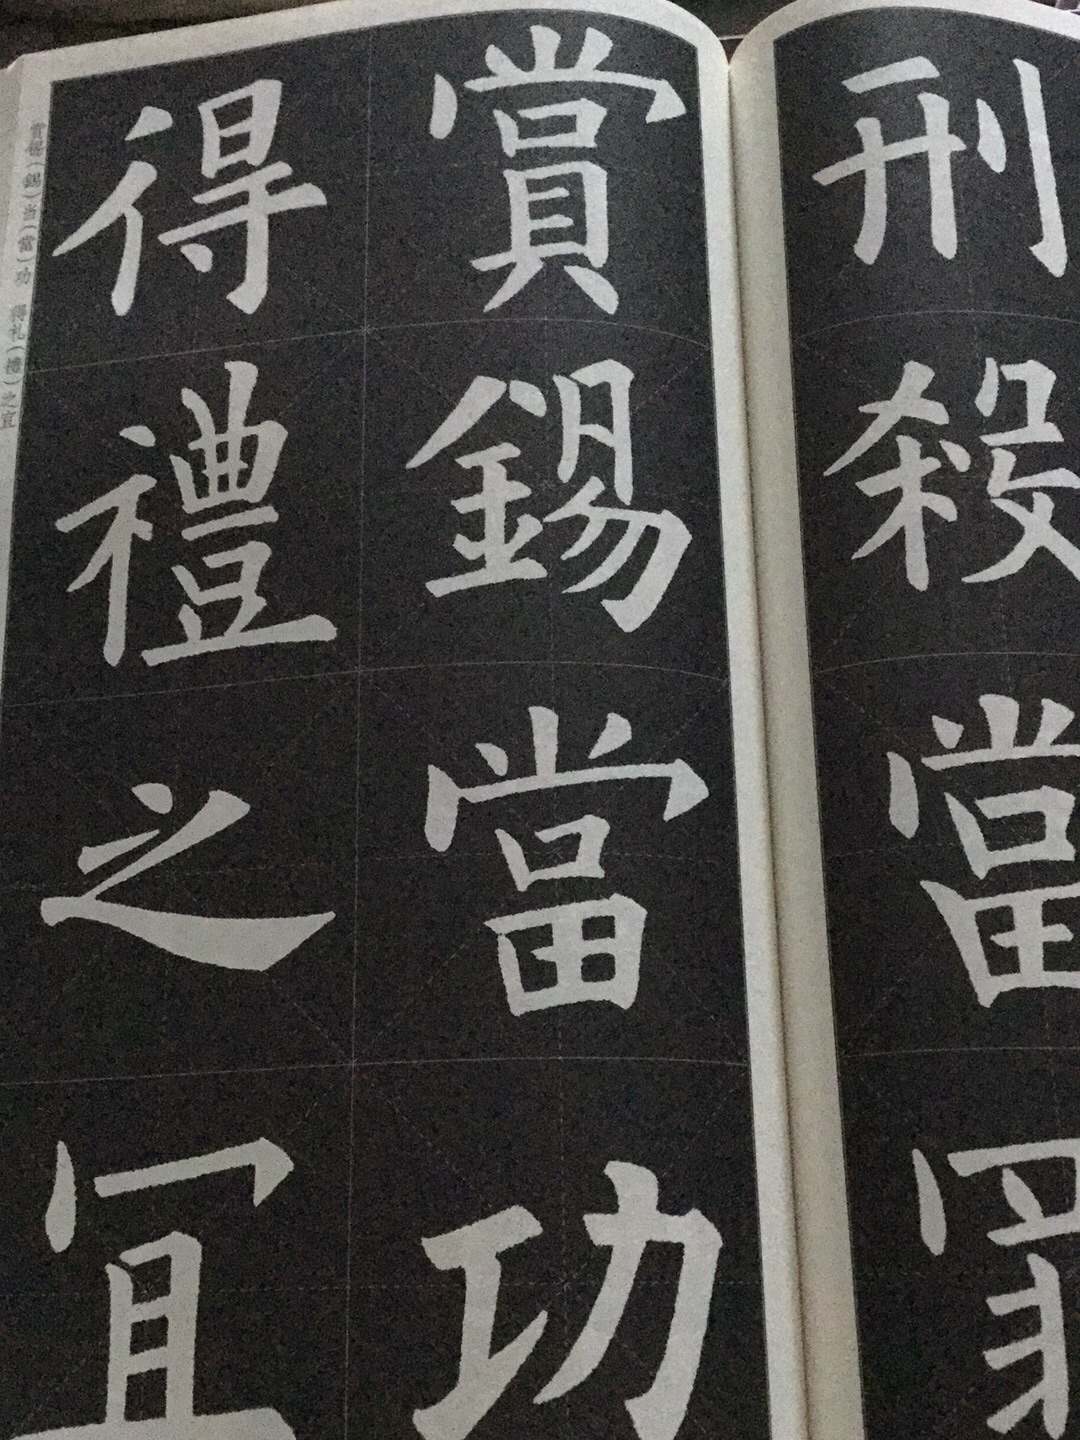 刑殺當罪
賞錫當功
得禮之宜
赏锡(錫)当(當)功 得礼(禮)之宜